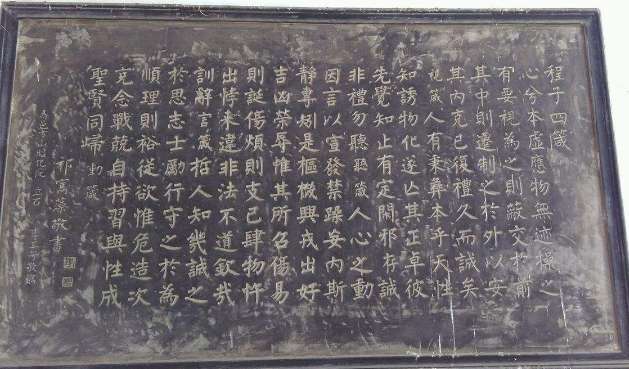 程子四箴
心兮本虛應物無迹操之
有要視為之則蔽交於前
其中則遷制之於外以安
其内克己復禮久而誠矣
視箴人有秉彝本乎天性
知誘物化遂亡其正卓彼
先覺知止有定閑邪存誠
非禮勿聽聽箴人心之動
因言以宣發禁躁妄内斯
靜專矧是樞機興戎出好
吉凶榮辱惟其所召傷易
則誕傷煩則支己肆物忤
出悖來違非法不道欽哉
訓辭言箴哲人知幾誠之
於思志士勵行守之於為
順理則裕從欲惟危造次
克念戰兢自持習與性成
聖賢同歸動箴
祁寯藻敬書